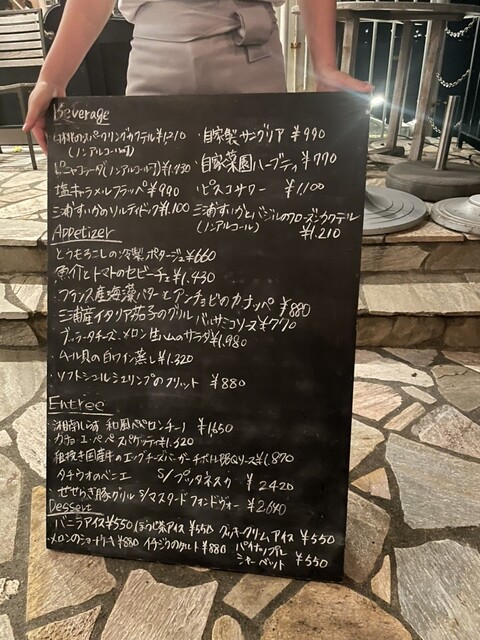 Beverage
スパークリングカクテル ¥1,210 ・自家製サングリア ¥990
(ノンアルコール可)
ピニャコラーダ(ノンアルコール可) ¥1,430 ・自家菜園ハーブティ ¥770
塩キャラメルフラッペ ¥990 ・ピスコサワー ¥1,100
三浦すいかのソルティドッグ ¥1,100 三浦すいかとバジルのフローズンカクテル
(ノンアルコール) ¥1,210
Appetizer
とうもろこしの冷製ポタージュ ¥660
魚介とトマトのセビーチェ ¥1,430
フランス産海藻バターとアンチョビのカナッペ ¥880
三浦産イタリア茄子のグリル バルサミコソース ¥770
ブッラータチーズ、メロン、生ハムのサラダ ¥1,980
ムール貝の白ワイン蒸し ¥1,320
ソフトシェルシュリンプのフリット ¥880
Entree
湘南しらす 和風ペペロンチーノ ¥1,650
カチョ・エ・ペペ スパゲッティ ¥1,320
粗挽き国産牛のエッグチーズバーガー チポトルBBQソース ¥1,870
タチウオのベニエ S/プッタネスカ ¥2420
せせらぎ豚グリル S/マスタードフォンドヴォー ¥2,640
Dessert
バニラアイス ¥550 ほうじ茶アイス ¥550 クッキークリームアイス ¥550
メロンのショートケーキ ¥880 イチジクのタルト ¥880 パイナップル
シャーベット ¥550